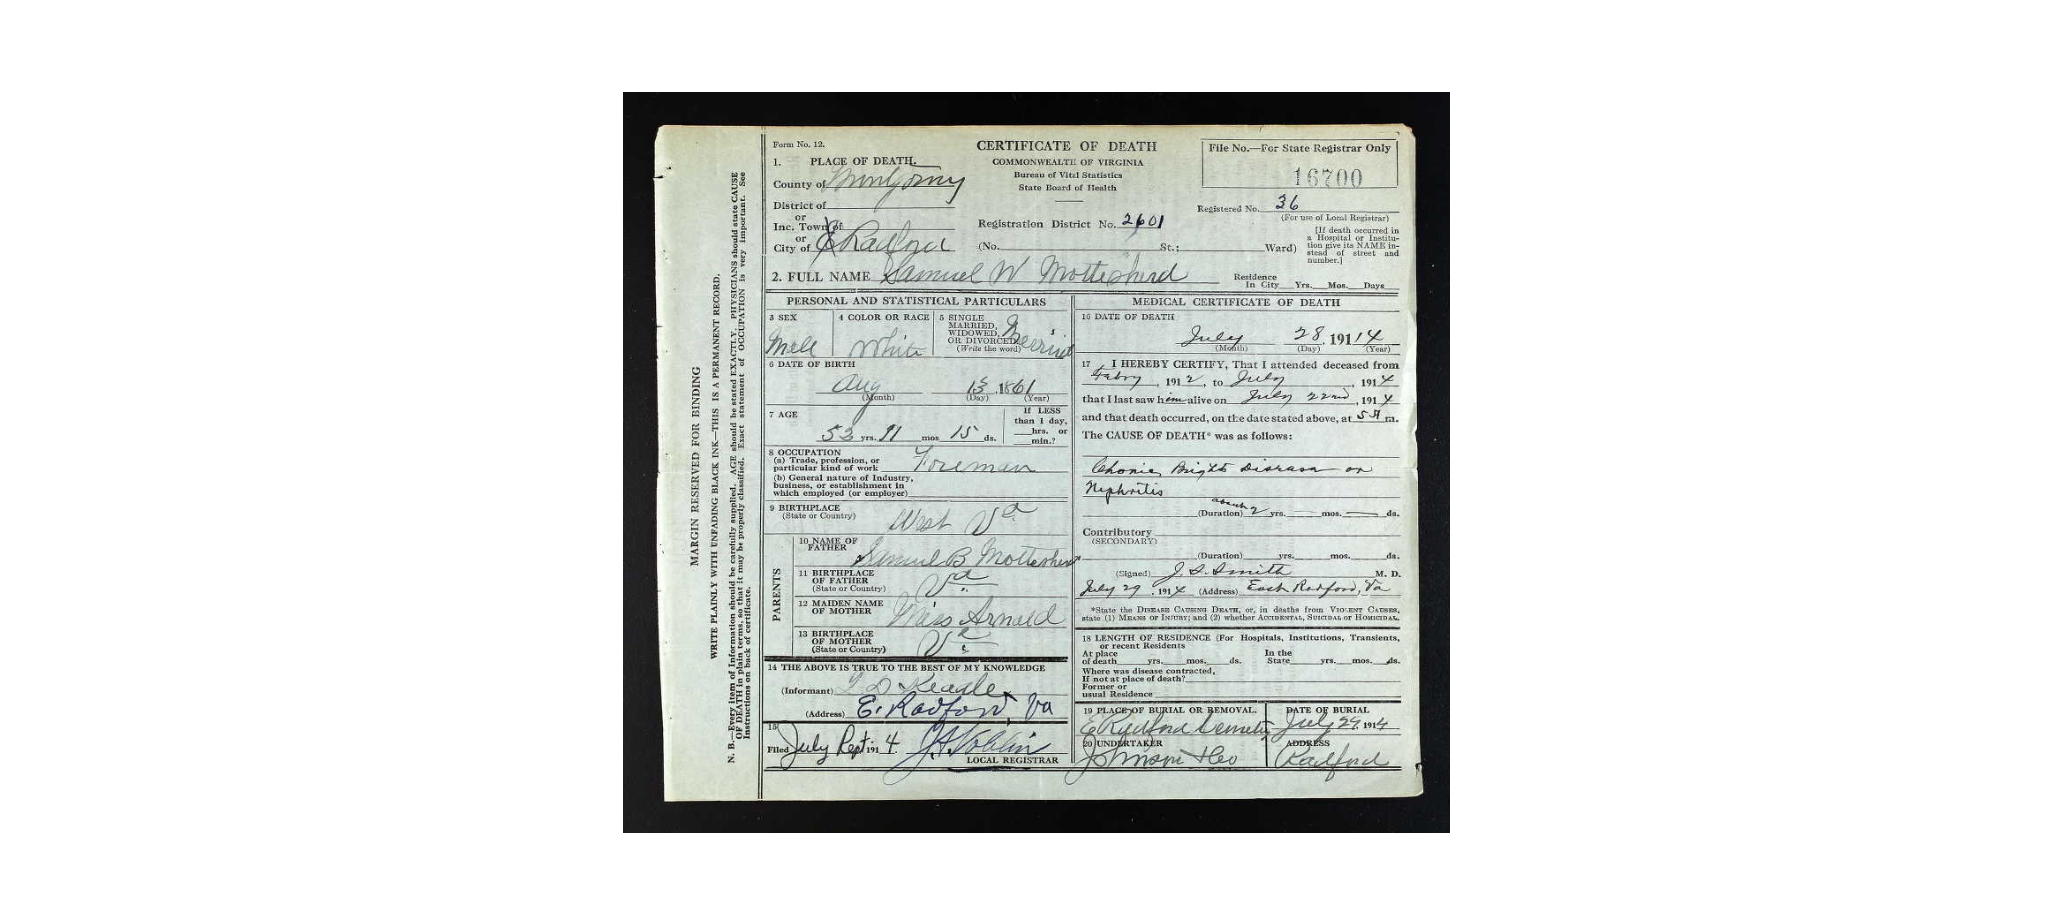 MARGIN RESERVED FOR BINDING
WRITE PLAINLY WITH UNFADING BLACK INK—THIS IS A PERMANENT RECORD.
N. B.—Every item of Information should be carefully supplied. AGE should be stated EXACTLY. PHYSICIANS should state CAUSE
OF DEATH in plain terms, so that it may be properly classified. Exact statement of OCCUPATION is very important. See
Instructions on back of certificate.
Form No. 12.
CERTIFICATE OF DEATH
COMMONWEALTH OF VIRGINIA
Bureau of Vital Statistics
State Board of Health
File No.—For State Registrar Only
16700
1. PLACE OF DEATH.
County of
District of
or
Inc. Town of
or
City of E Radford
Registration District No. 2601
Registered No. 36
(For use of Local Registrar)
(No. St.; Ward)
[If death occurred in
a Hospital or Institu-
tion give its NAME in-
stead of street and
number.]
2. FULL NAME Samuel W Mottesherd
Residence
In City Yrs. Mos. Days
PERSONAL AND STATISTICAL PARTICULARS
3 SEX
4 COLOR OR RACE
White
5 SINGLE
MARRIED,
WIDOWED,
OR DIVORCED
(Write the word)
6 DATE OF BIRTH
Aug 1861
(Month) (Day) (Year)
7 AGE
yrs. 11 mos 15 ds.
If LESS
than 1 day,
hrs. or
min.?
8 OCCUPATION
(a) Trade, profession, or
particular kind of work Foreman
(b) General nature of Industry,
business, or establishment in
which employed (or employer)
9 BIRTHPLACE
(State or Country) West Va
PARENTS
10 NAME OF
FATHER Samuel B Mottesherd
11 BIRTHPLACE
OF FATHER
(State or Country) Va
12 MAIDEN NAME
OF MOTHER Miss Arnold
13 BIRTHPLACE
OF MOTHER
(State or Country) Va
14 THE ABOVE IS TRUE TO THE BEST OF MY KNOWLEDGE
(Informant)
(Address) E. Radford, Va
15
Filed July Rept 1914.
LOCAL REGISTRAR
MEDICAL CERTIFICATE OF DEATH
16 DATE OF DEATH
July 28, 1914
(Month) (Day) (Year)
17 I HEREBY CERTIFY, That I attended deceased from
, 1912, to July , 1914
that I last saw him alive on July 22nd, 1914
and that death occurred, on the date stated above, at m.
The CAUSE OF DEATH* was as follows:
Chonic Brights Disease or
Nephritis
about
(Duration) 2 yrs. mos. ds.
Contributory
(SECONDARY)
(Duration) yrs. mos. ds.
(Signed) Smith M. D.
July 29, 1914 (Address) East Radford, Va
*State the DISEASE CAUSING DEATH, or, in deaths from VIOLENT CAUSES,
state (1) MEANS OF INJURY; and (2) whether ACCIDENTAL, SUICIDAL or HOMICIDAL.
18 LENGTH OF RESIDENCE (For Hospitals, Institutions, Transients,
or recent Residents
At place
of death yrs. mos. ds.
In the
State yrs. mos. ds.
Where was disease contracted,
If not at place of death?
Former or
usual Residence
19 PLACE OF BURIAL OR REMOVAL.
E Radford
DATE OF BURIAL
July 29 1914
20 UNDERTAKER
Johnson
ADDRESS
Radford